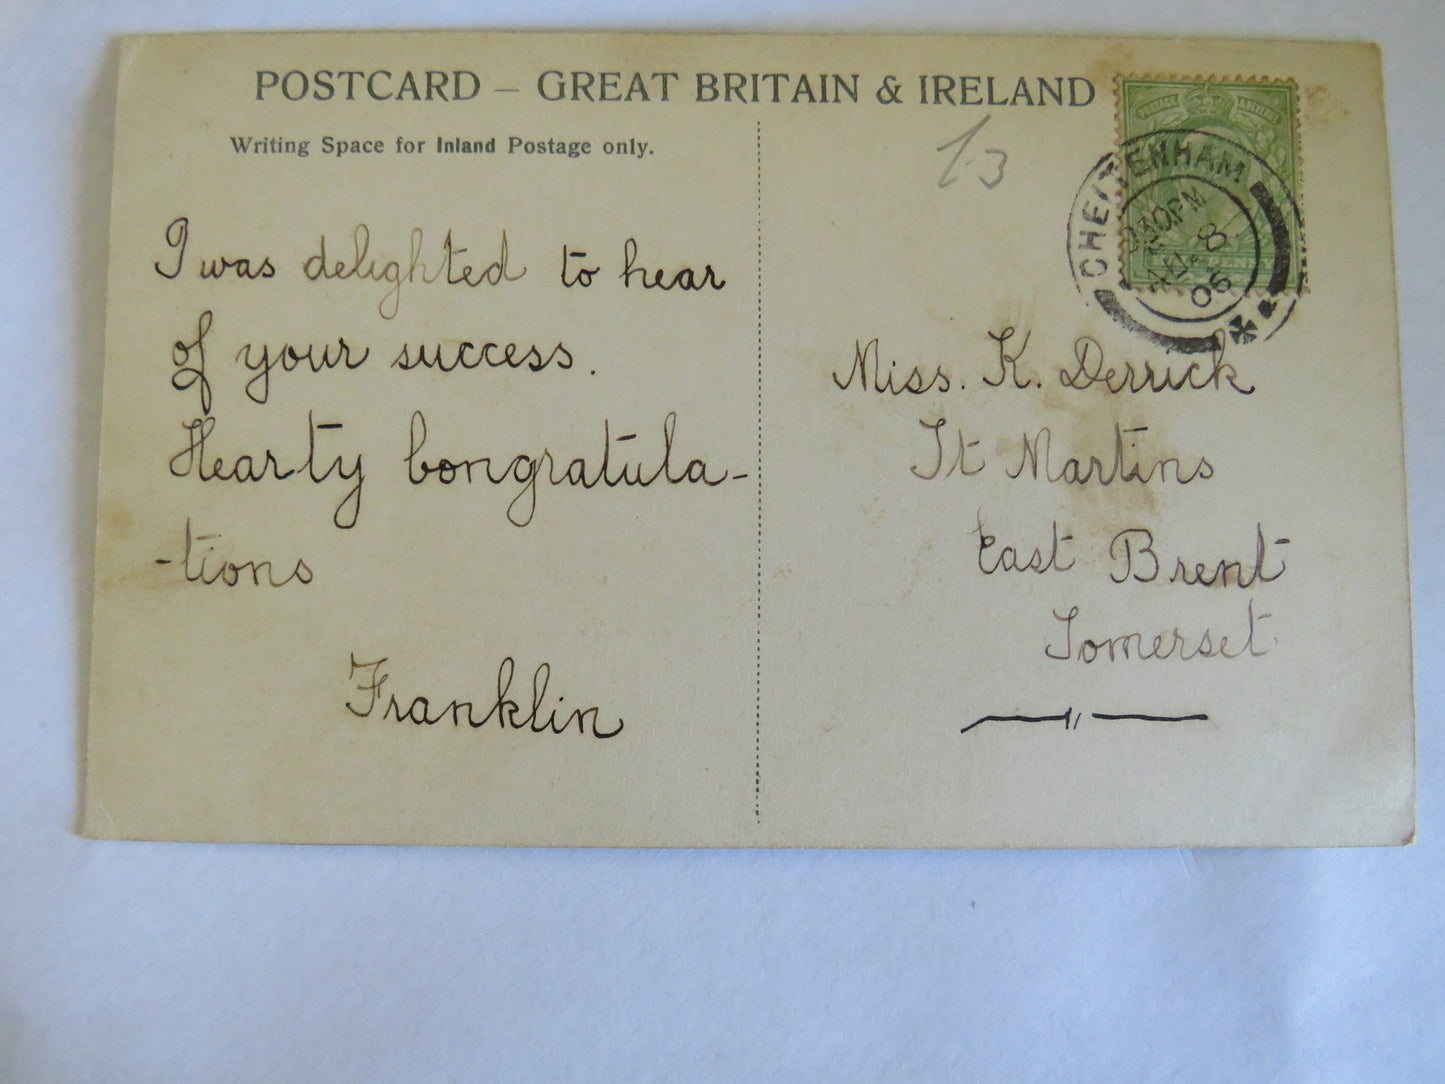 POSTCARD – GREAT BRITAIN & IRELAND
Writing Space for Inland Postage only.
I was delighted to hear
of your success.
Hearty Congratula-
-tions
Franklin
1-3
POSTAGE REVENUE
PENNY
CHELTENHAM
30PM
8
06
Miss. K. Derrick
St Martins
East Brent
Somerset